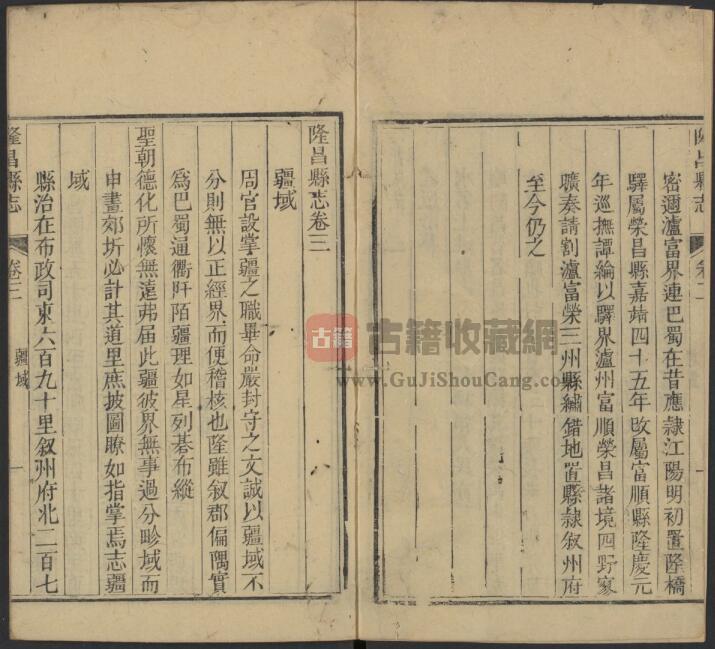 隆昌縣志
卷二
密邇瀘富界連巴蜀在昔應隷江陽明初置隆橋
驛屬榮昌縣嘉靖四十五年改屬富順縣隆慶元
年巡撫譚綸以驛界瀘州富順榮昌諸境四野寥
曠奏請割瀘富榮三州縣繡錯地置縣隷叙州府
至今仍之
隆昌縣志卷三
疆域
周官設掌疆之職畢命嚴封守之文誠以疆域不
分則無以正經界而便稽核也隆雖叙郡偏隅實
爲巴蜀通衢阡陌疆理如星列碁布縱
聖朝德化所懷無遠弗届此疆彼界無事過分畛域而
申畫郊圻必計其道里庶披圖瞭如指掌焉志疆
域
縣治在布政司東六百九十里叙州府北二百七
隆昌縣志
卷三
疆域
一
古籍
古籍收藏網
www.GuJiShouCang.com